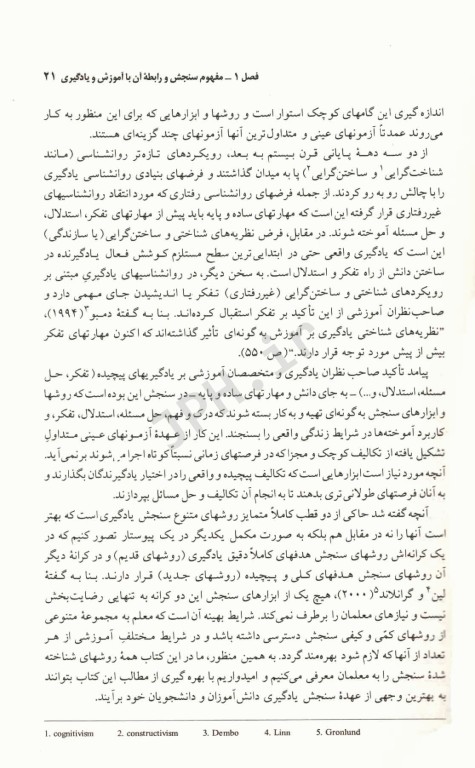 فصل ۱ ــ مفهوم سنجش و رابطهٔ آن با آموزش و یادگیری ۲۱
اندازه گیری این گامهای کوچک استوار است و روشها و ابزارهایی که برای این منظور به کار
می‌روند عمدتاً آزمونهای عینی و متداول‌ترین آنها آزمونهای چند گزینه‌ای هستند.
از دو سـه دهـهٔ پـایانی قرن بـیستم بـه بعد، رویکـردهای تازه‌تر روانشناسی (مـانند
شناخت‌گرایی۱ و ساختن‌گرایی۲) پا به میدان گذاشتند و فرضهای بنیادی روانشناسی یادگیری
را با چالش رو به رو کردند. از جمله فرضهای روانشناسی رفتاری که مورد انتقاد روانشناسیهای
غیررفتاری قرار گرفته این است که مهارتهای ساده و پایه باید پیش از مهارتهای تفکر، استدلال،
و حل مسئله آموخته شوند. در مقابل، فرض نظریه‌های شناختی و ساختن‌گرایی (یا سازندگی)
این است که یادگیری واقعی حتی در ابتدایی‌ترین سطح مستلزم کـوشش فـعال یـادگیرنده در
ساختن دانش از راه تفکر و استدلال است. به سخن دیگر، در روانشناسیهای یادگیریِ مبتنی بر
رویکردهای شناختی و ساختن‌گرایی (غیررفتاری) تـفکـر یـا انـدیشیدن جـای مـهمی دارد و
صاحب‌نظران آموزشی از این تأکید بر تفکر استقبال کـرده‌انـد. بـنـا بـه گـفتهٔ دمـبو۳ (۱۹۹۴)،
"نظریه‌های شناختی یادگیری بر آموزش به گونه‌ای تأثیر گذاشته‌اند که اکنون مهارتهای تفکر
بیش از پیش مورد توجه قرار دارند."(ص ۵۵۰).
پیامد تأکید صاحب نظران یادگیری و متخصصان آموزشی بر یادگیریهای پیچیده (تفکر، حـل
مسئله، استدلال، و...) ــ به جای دانش و مهارتهای ساده و پایه ــ در سنجش این بوده است که روشها
و ابزارهای سنجش به گونه‌ای تهیه و به کار بسته شوند که درک و فهم، حل مسئله، استدلال، تفکر، و
کاربرد آموخته‌ها در شرایط زندگی واقعی را بسنجند. این کار از عـهدهٔ آزمـونهای عـینی مـتداولِ
تشکیل یافته از تکالیف کوچک و مجزا که در فرصتهای زمانی نسبتاً کوتاه اجرا می‌شوند برنمی‌آید.
آنچه مورد نیاز است ابزارهایی است که تکالیف پیچیده و واقعی را در اختیار یادگیرندگان بگذارند و
به آنان فرصتهای طولانی‌تری بدهند تا به انجام آن تکالیف و حل مسائل بپردازند.
آنچه گفته شد حاکی از دو قطب کاملاً متمایز روشهای متنوع سنجش یادگیری است که بهتر
است آنها را نه در مقابل هم بلکه به صورت مکمل یکدیگر در یک پیوستار تصور کنیم که در
یک کرانه‌اش روشهای سنجش هدفهای کاملاً دقیق یادگیری (روشهای قدیم) و در کرانهٔ دیگر
آن روشهای سنجش هدفهای کـلی و پـیچیده (روشـهای جـدید) قـرار دارنـد. بـنـا بـه گـفتهٔ
لین۴ و گرانلاند۵ (۲۰۰۰)، هیچ یک از ابزارهای سنجش این دو کرانه به تنهایی رضایت‌بخش
نیست و نیازهای معلمان را برطرف نمی‌کند. شرایط بهینه آن است که معلم به مجموعهٔ متنوعی
از روشهای کمّی و کیفی سنجش دسترسی داشته باشد و در شرایط مـختلف آمـوزشی از هـر
تعداد از آنها که لازم شود بهره‌مند گردد. به همین منظور، ما در این کتاب همهٔ روشهای شناخته
شدهٔ سنجش را به معلمان معرفی می‌کنیم و امیدواریم با بهره گیری از مطالب این کتاب بتوانند
به بهترین وجهی از عهدهٔ سنجش یادگیری دانش‌آموزان و دانشجویان خود برآیند.
1. cognitivism 2. constructivism 3. Dembo 4. Linn 5. Gronlund